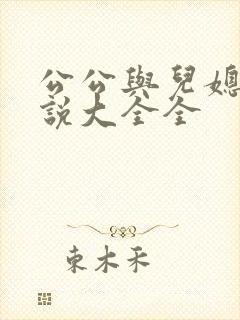 公公與兒媳
說大全全
東木禾